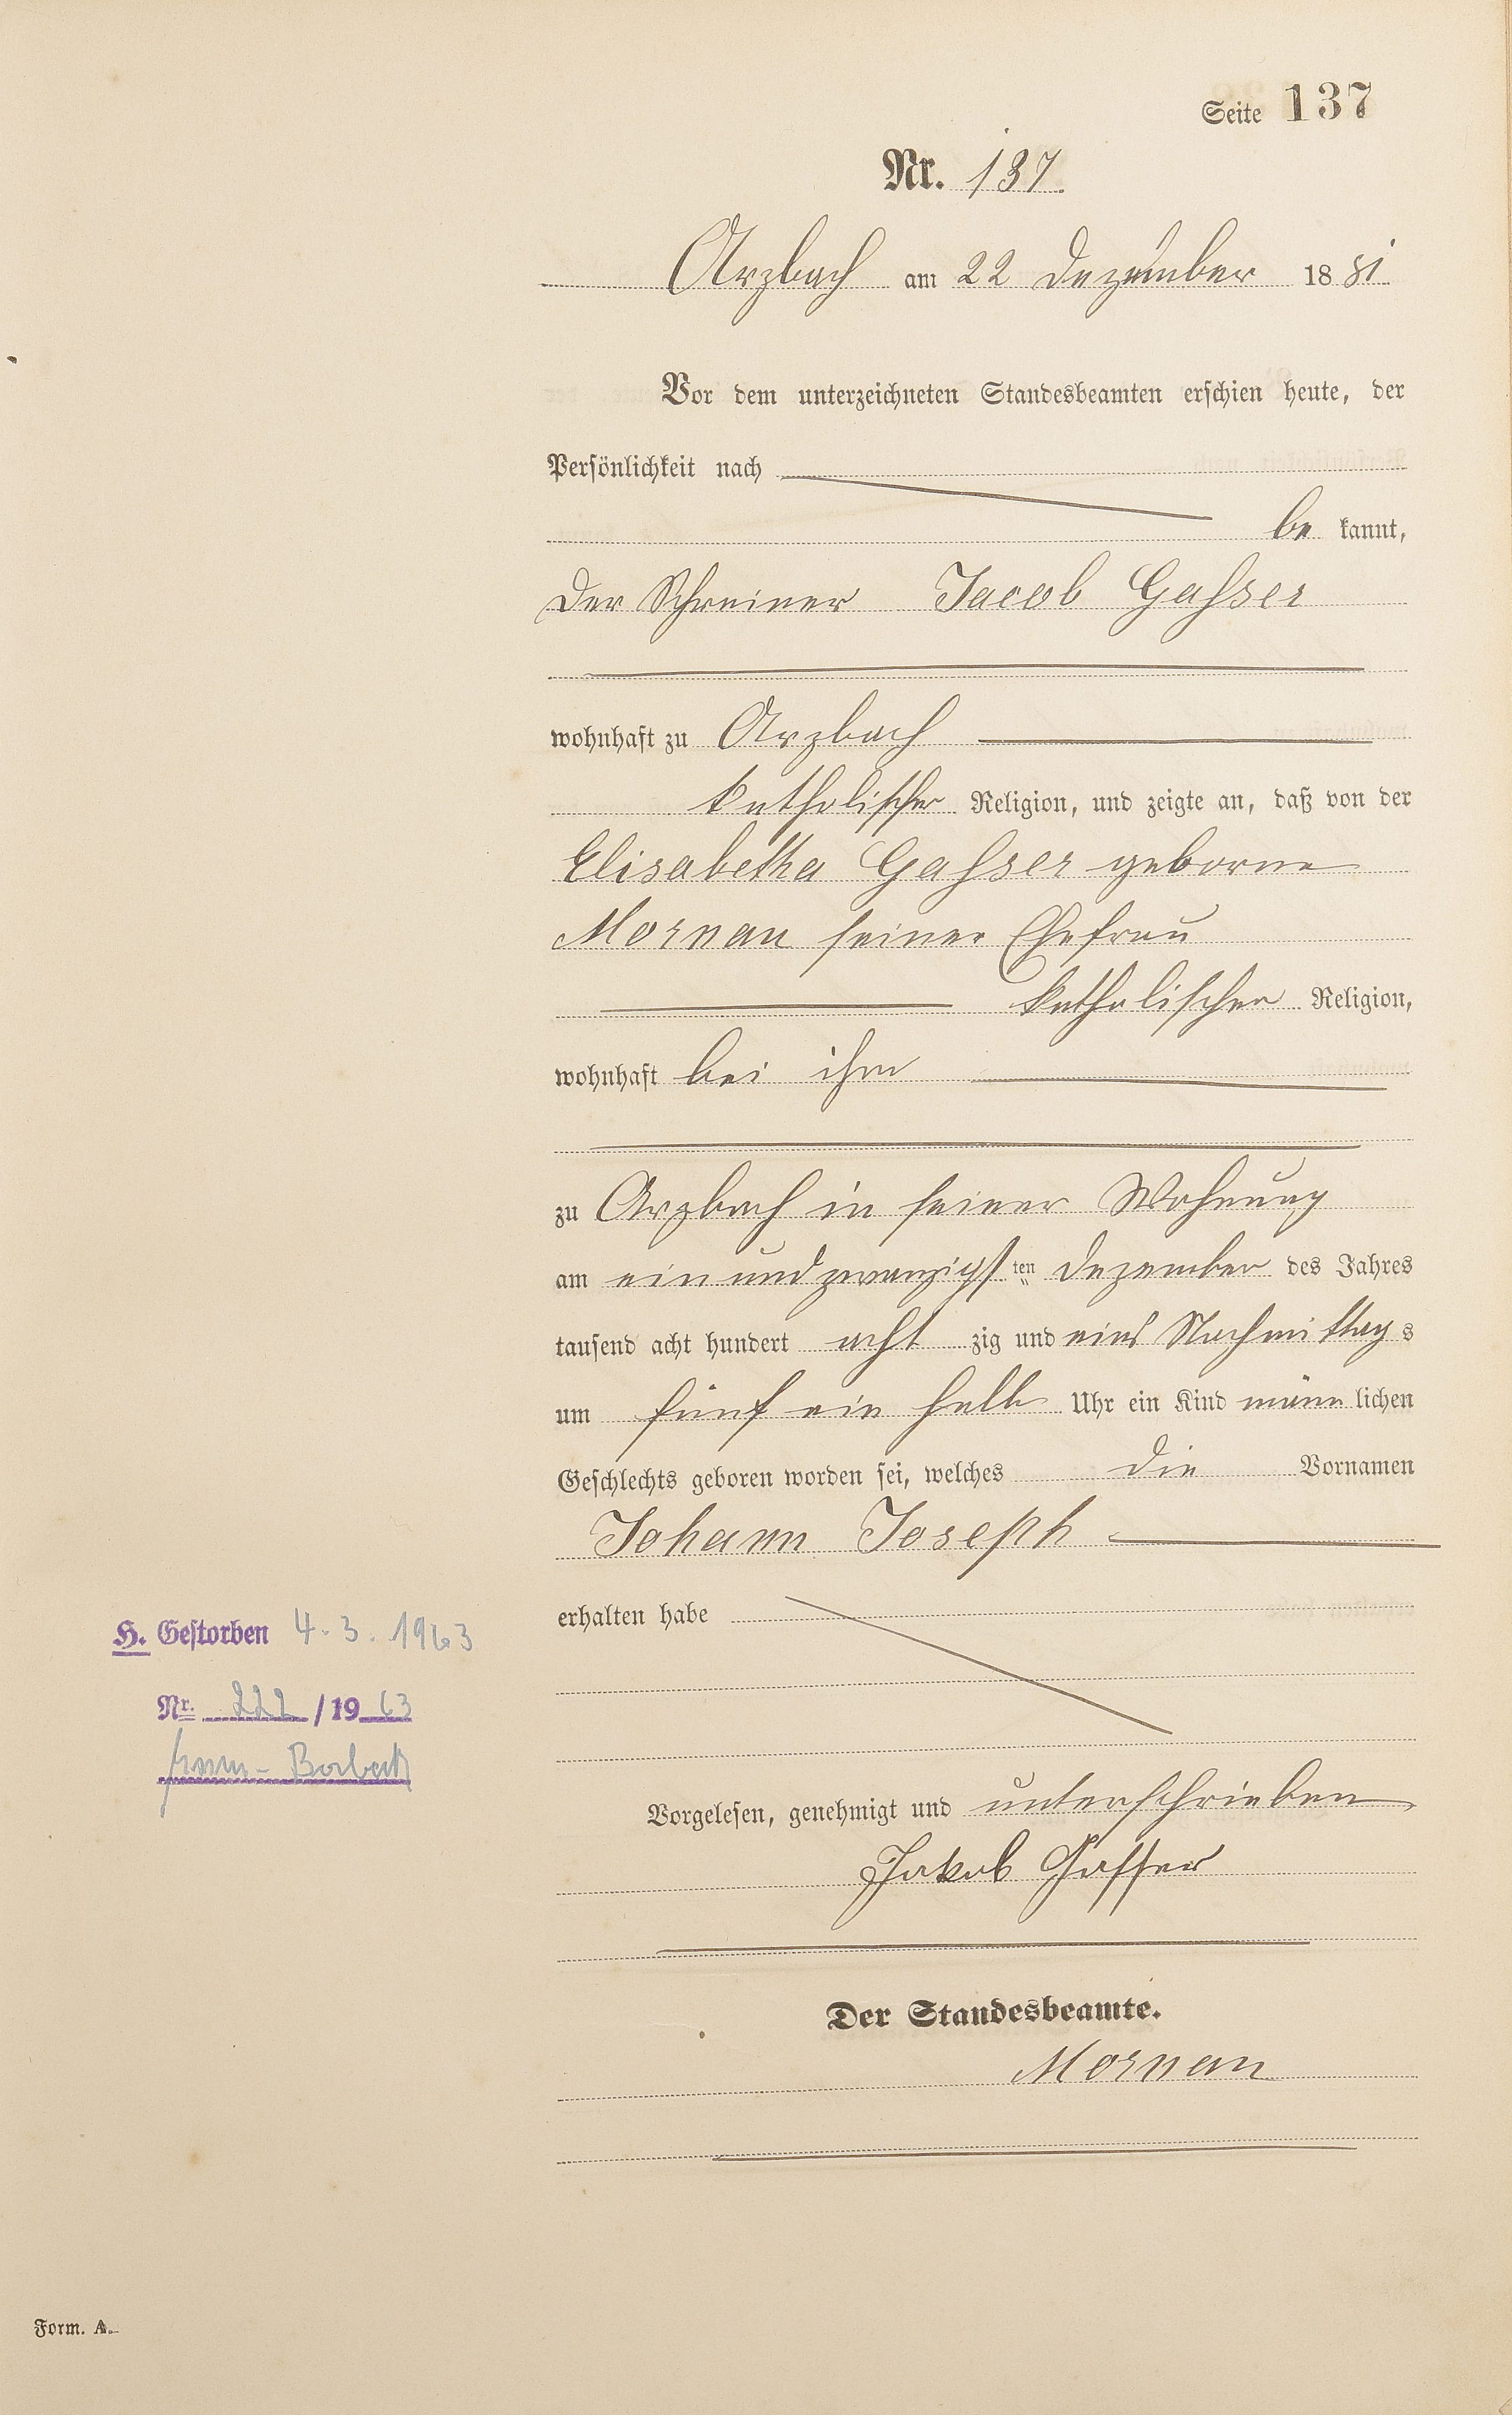 Seite 137
Nr. 137.
Arzbach am 22 Dezember 1881
Vor dem unterzeichneten Standesbeamten erschien heute, der
Persönlichkeit nach
be kannt,
der Schreiner Jacob Gaßser
wohnhaft zu Arzbach
katholischer Religion, und zeigte an, daß von der
Elisabetha Gaßser geborne
Mornau seiner Ehefrau
katholischer Religion,
wohnhaft bei ihm
zu Arzbach in seiner Wohnung
am ein und zwanzigsten Dezember des Jahres
tausend acht hundert acht zig und eins Nachmittags
um fünf ein halb Uhr ein Kind männlichen
Geschlechts geboren worden sei, welches die Vornamen
Johann Joseph
erhalten habe
H. Gestorben 4.3.1963
Nr. 222/1963
Essen-Borbeck
Vorgelesen, genehmigt und unterschrieben
Jakob Gasser
Der Standesbeamte.
Mornau
Form. A.